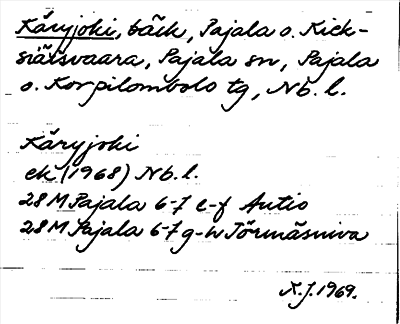 Käryjoki, bäck, Pajala o. Kiek-
siäisvaara, Pajala sn, Pajala
o. Korpilombolo tg, Nb. l.
Käryjoki
ek (1968) Nb. l.
28 M Pajala 6-7 e-f Autio
28 M Pajala 6-7 g-h Törmäsniva
N.J. 1969.